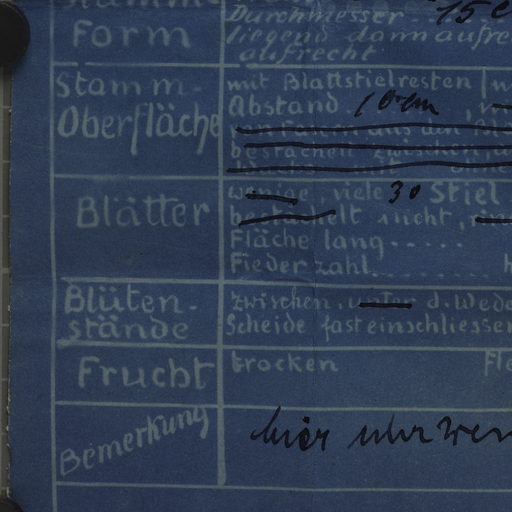 Durchmesser 15
Form liegend dann aufre
aufrecht
Stamm- mit Blattstielresten
Oberfläche Abstand 10 cm
Blätter wenige viele 30 Stiel
bestachelt nicht,
Fläche lang
Fiederzahl
Blüten- zwischen, unter d. Wede
stände Scheide fast einschliessen
Frucht trocken Fle
Bemerkung hier nur wen